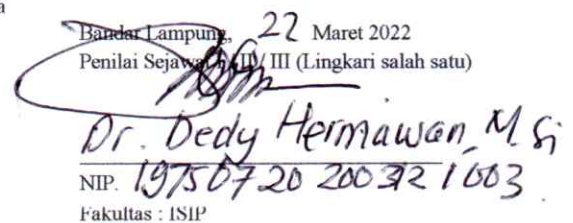 a
Bandar Lampung, 22 Maret 2022
Penilai Sejawat I/II/ III (Lingkari salah satu)
Dr. Dedy Hermawan, M.Si
NIP. 19750720 200312 1 003
Fakultas : ISIP